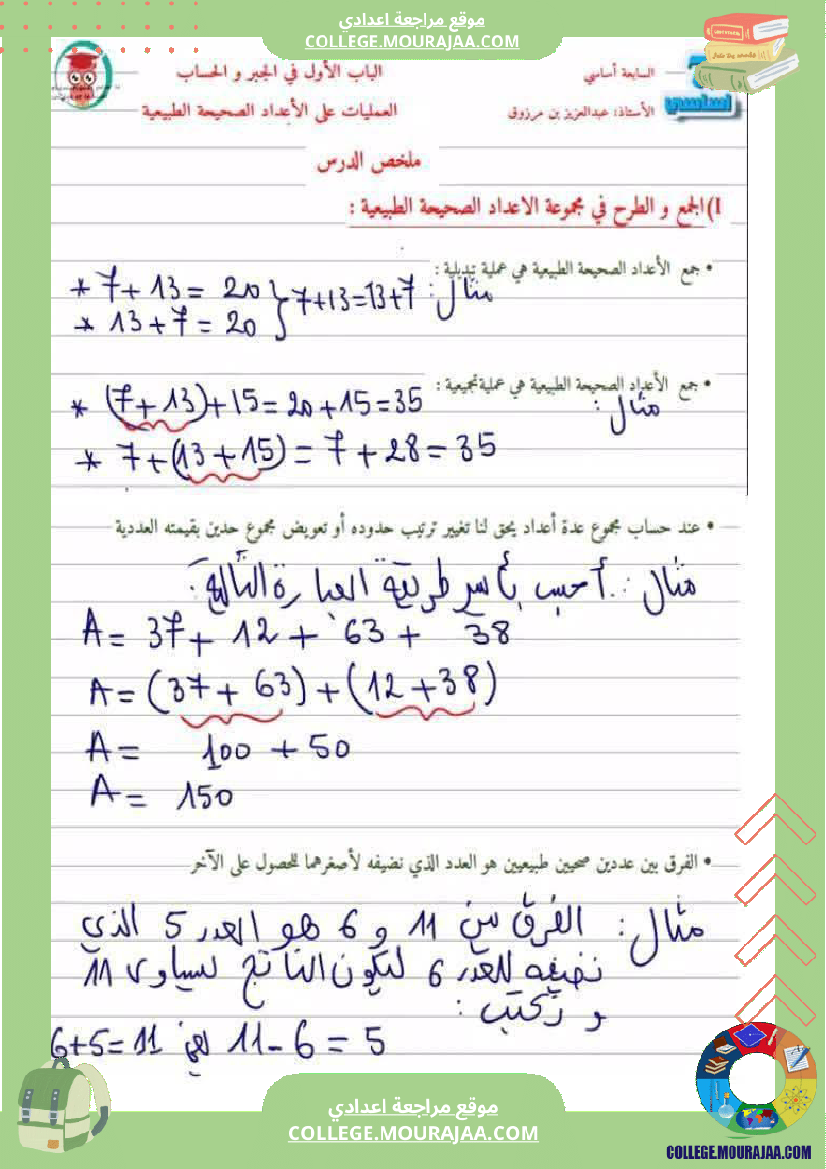 موقع مراجعة اعدادي
COLLEGE.MOURAJAA.COM
السابعة أساسي
الباب الأول في الجبر و الحساب
أساسي
الأستاذ: عبدالعزيز بن مرزوق
العمليات على الأعداد الصحيحة الطبيعية
ملخص الدرس
I) الجمع و الطرح في مجموعة الاعداد الصحيحة الطبيعية :
• جمع الأعداد الصحيحة الطبيعية هي عملية تبديلية :
مثال :
* 7 + 13 = 20
* 13 + 7 = 20
} 7+13=13+7
• جمع الأعداد الصحيحة الطبيعية هي عملية تجميعية :
مثال :
* (7 + 13) + 15 = 20 + 15 = 35
* 7 + (13 + 15) = 7 + 28 = 35
• عند حساب مجموع عدة أعداد يحق لنا تغيير ترتيب حدوده أو تعويض مجموع حدين بقيمته العددية
مثال : أحسب بأيسر طريقة العبارة التالية :
A = 37 + 12 + 63 + 38
A = (37 + 63) + (12 + 38)
A = 100 + 50
A = 150
• الفرق بين عددين صحيحين طبيعيين هو العدد الذي نضيفه لأصغرهما للحصول على الآخر
مثال : الفرق بين 11 و 6 هو العدد 5 الذي
نضيفه للعدد 6 ليكون الناتج يساوي 11
و نكتب :
11 - 6 = 5 يعني 6+5=11
موقع مراجعة اعدادي
COLLEGE.MOURAJAA.COM
COLLEGE.MOURAJAA.COM